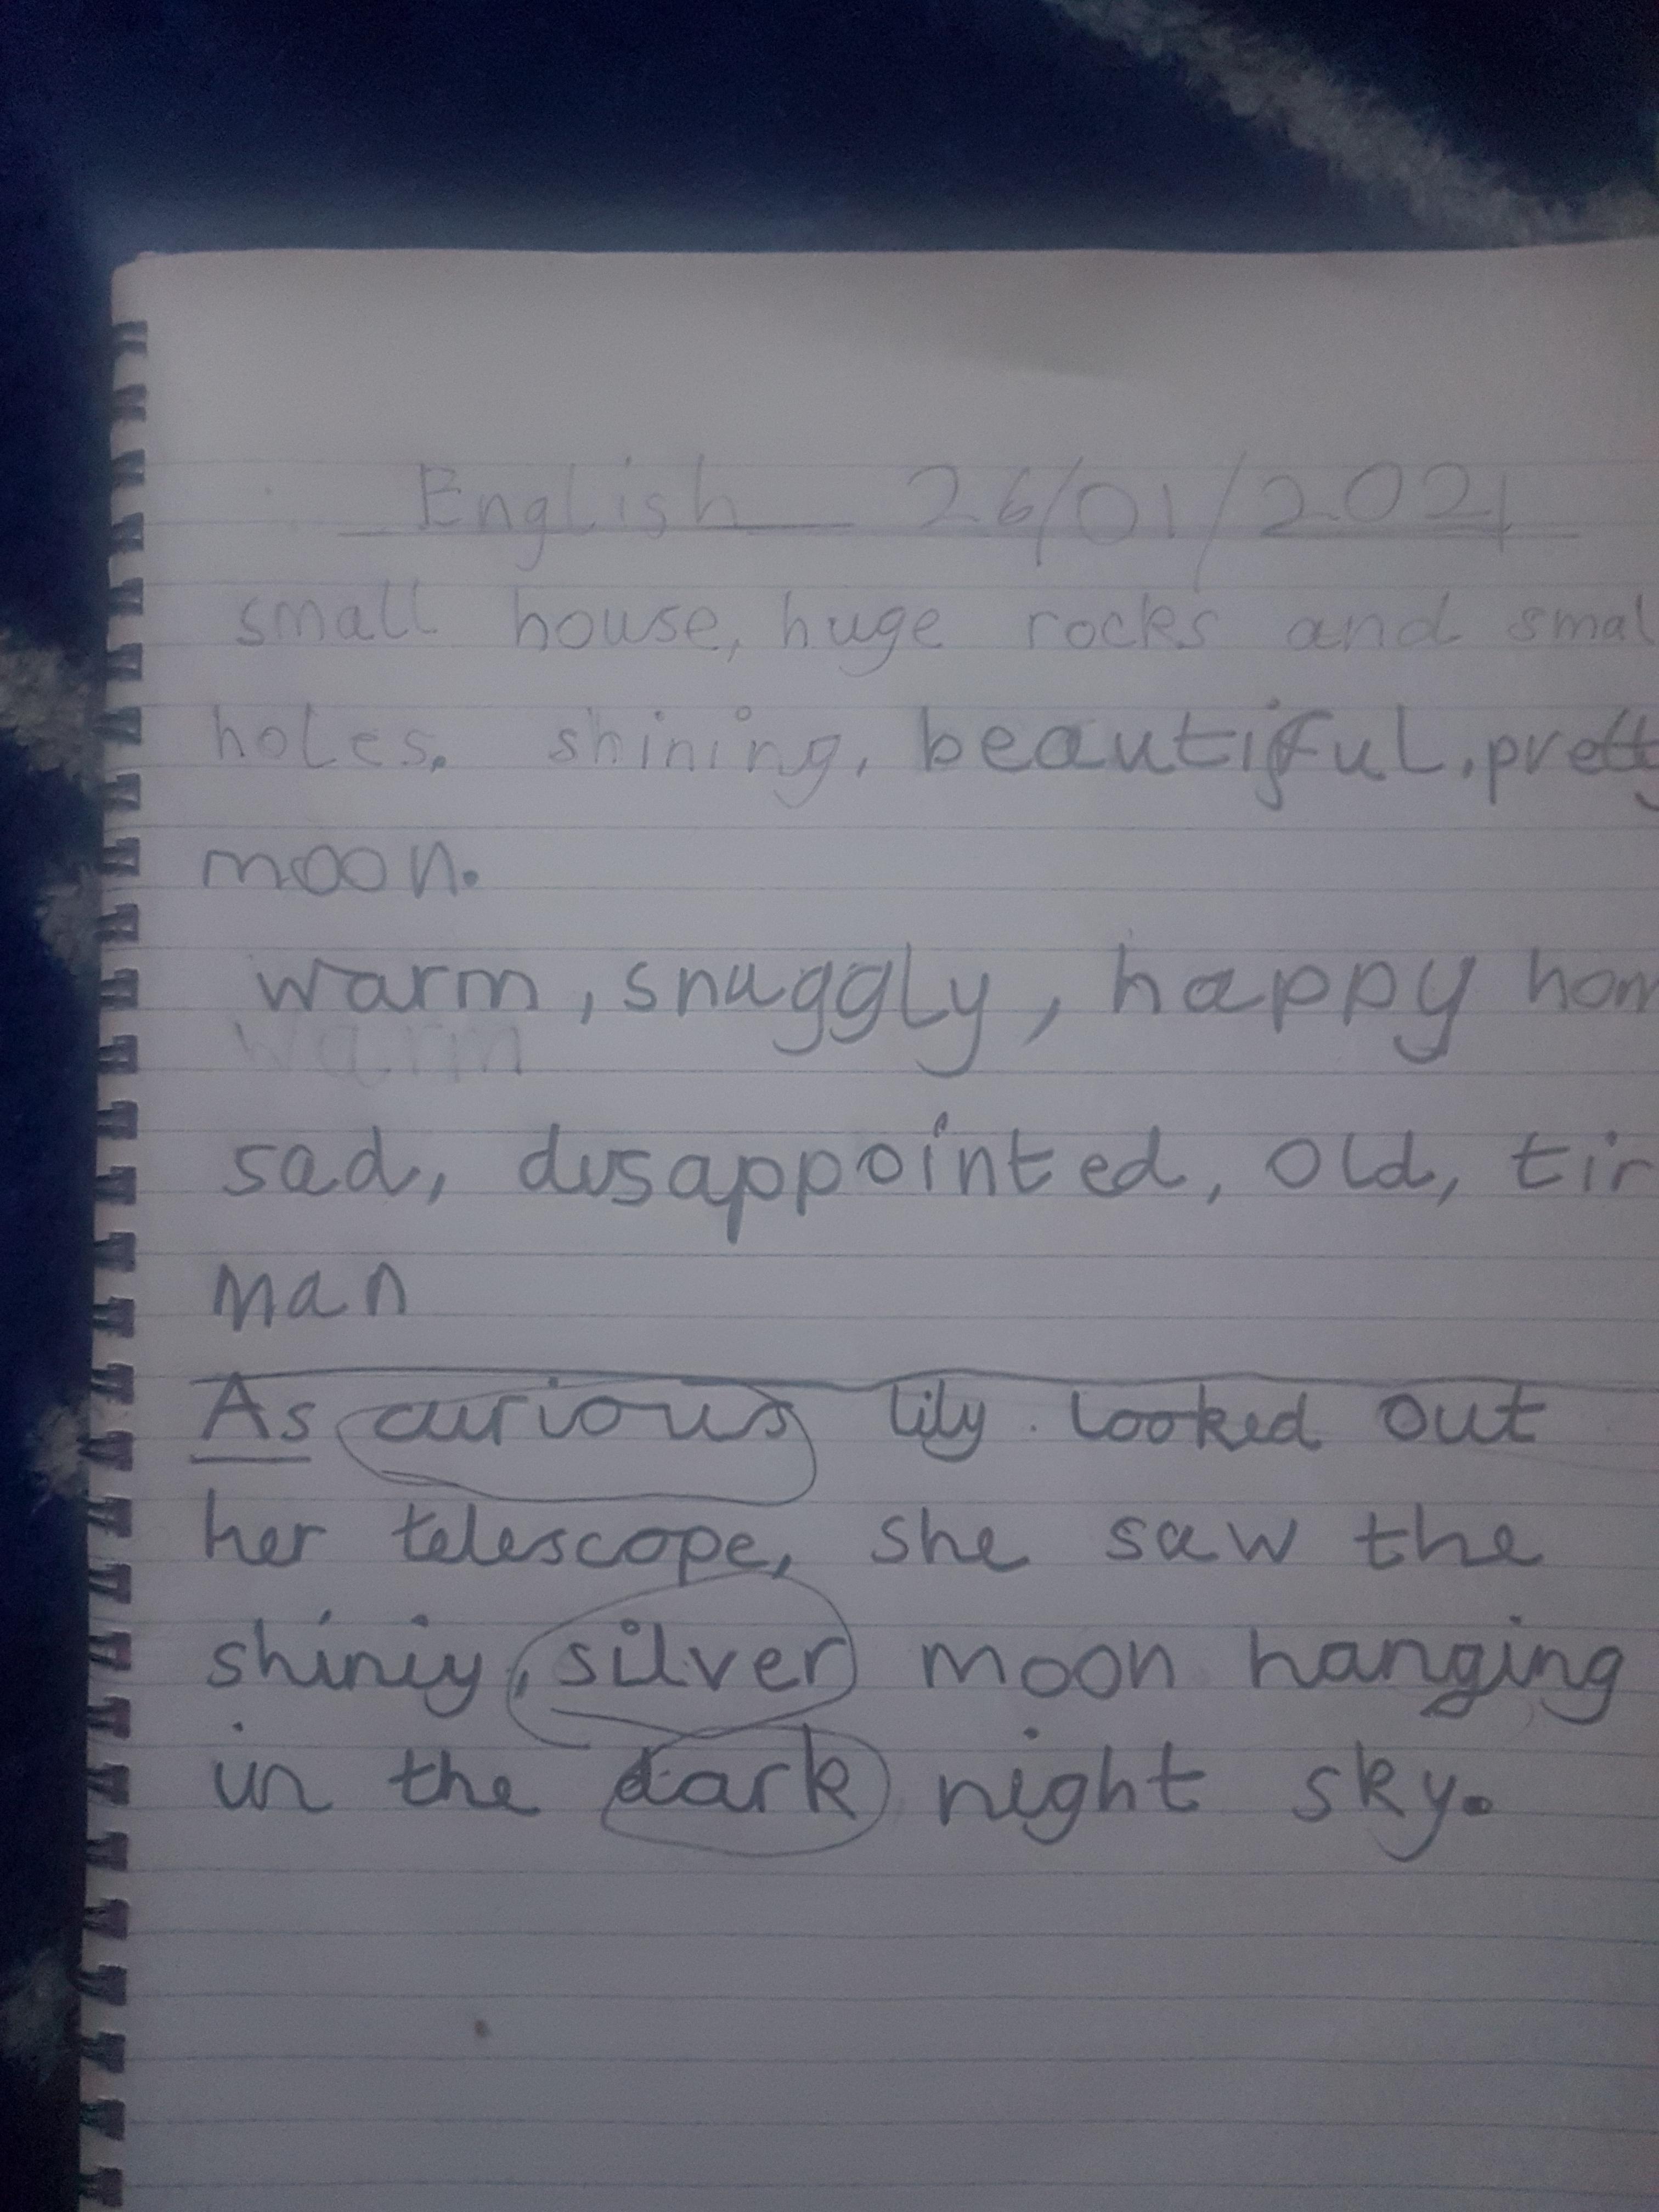 English 26/01/2021
small house, huge rocks and smal
holes. shining, beautiful, pretty
moon.
warm, snuggly, happy hom
warm
sad, disappointed, old, tir
man
As curious lily looked out
her telescope, she saw the
shiniy, silver moon hanging
in the dark night sky.